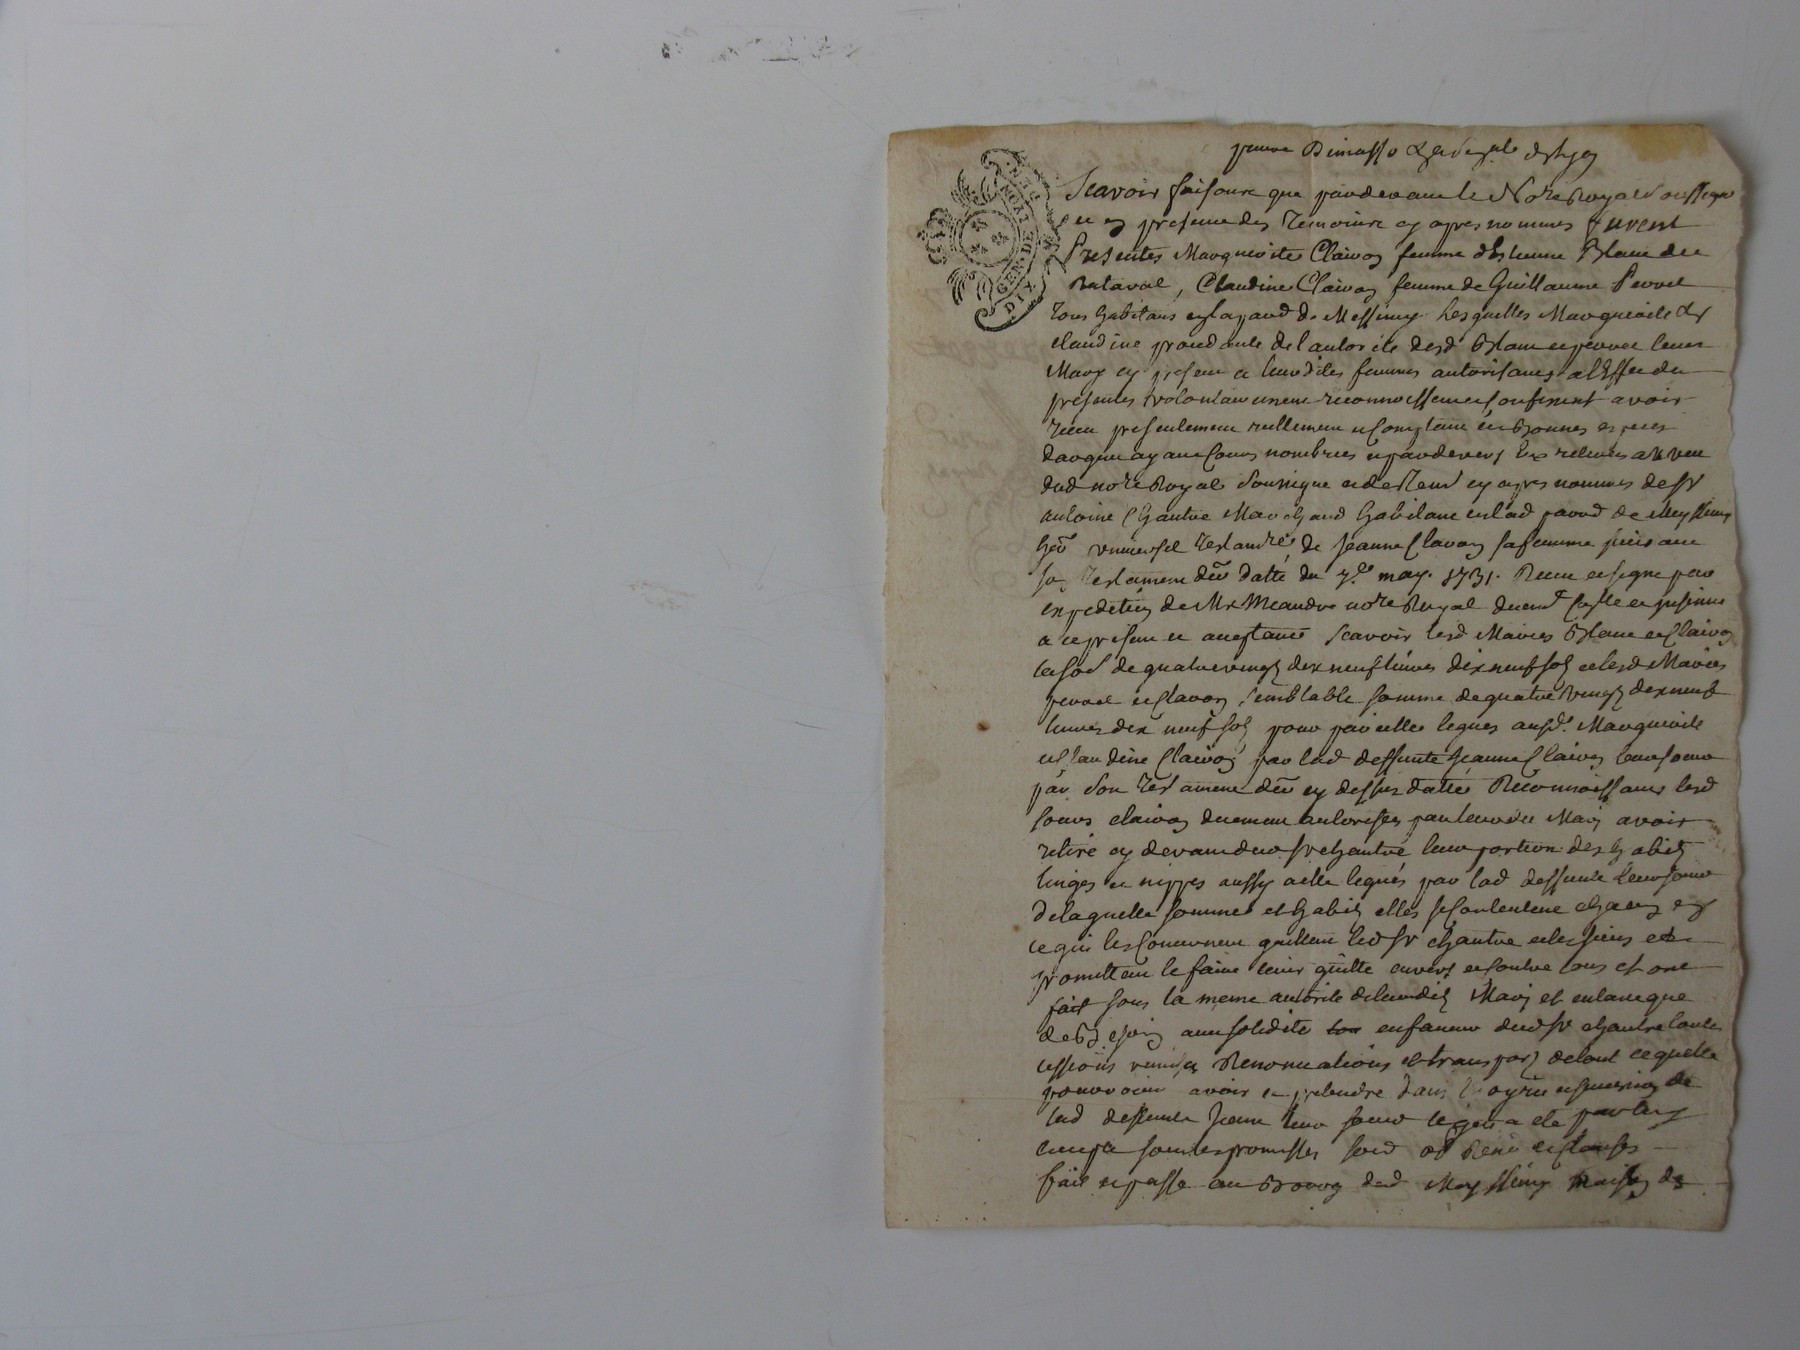 GEN. DE LYON
DIX DEN.
Scavoir faisons que pardevant le No.re Royal soussigné
et en presence des temoins cy apres nommes furent
Presentes Marguerite Clairon femme d'Estienne Blanc du
Rataval, Claudine Clairon femme de Guillaume Perret
tous habitans en la parr.d de Messimy lesquelles Marguerite &
claudine procedante de l'autorité desd Blanc et perret leurs
Mary cy present et leursdites femmes autorisant a l'Effet des
presentes volontairement reconnoissent et confessent avoir
receu presentement reellement et comptant en bonnes especes
d'argent ayant cours nombrées et pardevers eux retirées au veu
dud no.re Royal soussigne et des tem. cy apres nommes de Sr
antoine Chantre Marchand habitant en lad parr.d de Meyssimy
her universel testam.re de Jeanne Clavon sa femme suivant
son testament datté du may. 1731. Receu et signé par
expedition de Me Meandre no.re Royal
a ce present et acceptant scavoir lesd Maries Blanc et Clairon
la so.e de quatre vingt dix neuf livres dix neuf sols et lesd Maries
perret et Clavon semblable somme de quatre vingt dix neuf
livres dix neuf sols pour pareilles legues ausd. Marguerite
et Claudine Clairon par lad deffunte Jeanne Clairon leur soeur
par son testament cy dessus datté Reconnoissant lesd
soeurs clairon autorises par leursdits Mary avoir
retiré cy devant dud Sr chantre leur portion des habits
linges et nippes aussy a elle legués par lad deffunte leur soeur
de laquelle somme et habits elles se contentent chacun en
ce qui les concernent quittent led Sr chantre et les siens et
promettent le faire tenir quitte envers et contre tous et ont
fait sous la meme autorité de leursdits Mary et en tant que
de besoin avec solidité en faveur dud Sr chantre toutes
cessions remises Renonciations et transports de tout ce quelle
pouvoient avoir et pretendre dans l'hoyrie et succession de
lad deffunte Jeanne leur soeur
sous les promesses et clauses
fait et passé au Bourg dud Meyssimy maison de